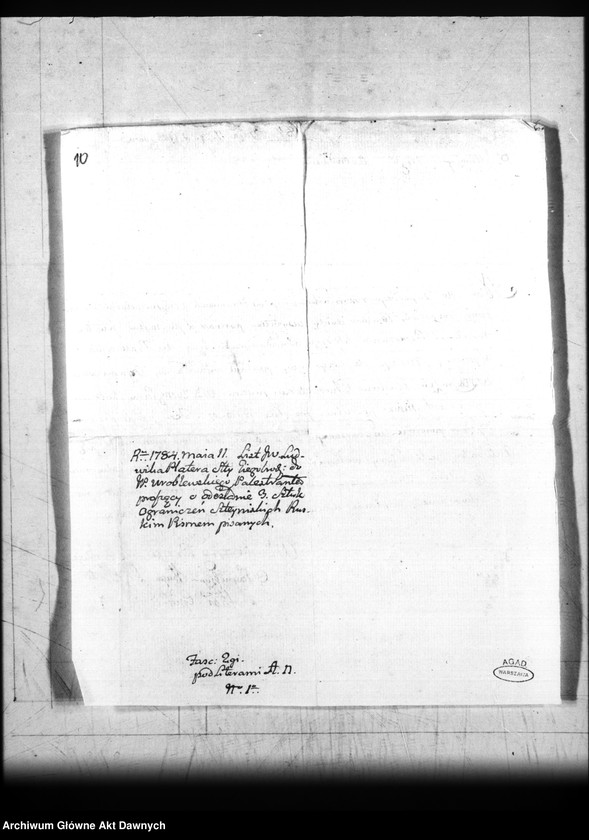 10
Rku 1784. maia 11. List JW Lud-
wika Platera Sty do
W. Wroblewskiego Palestranta
proszący o odesłanie 3. Sztuk
Ograniczeń Rus-
kim Pismem pisanych.
Fasc: 2gi.
pod Literami A. D.
N. 1.
AGAD
WARSZAWA
Archiwum Główne Akt Dawnych